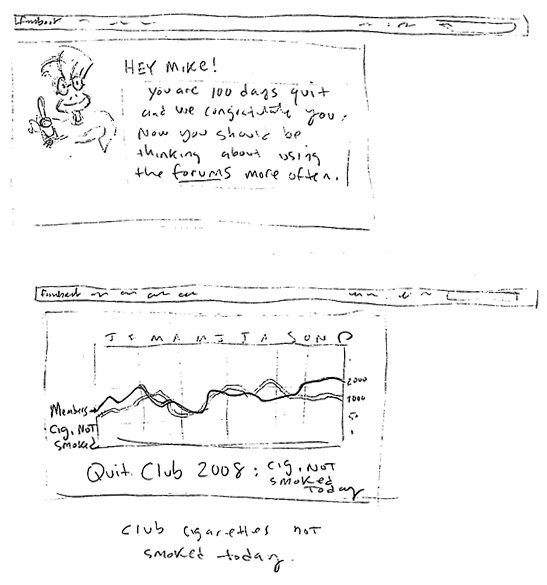 HEY MIKE!
you are 100 days quit
and we congratulate you.
Now you should be
thinking about using
the forums more often.
J F M A M J J A S O N D
2000
1000
50
Members
Cig. NOT
smoked
Quit Club 2008: Cig. NOT
smoked
TODAY
Club cigarettes not
smoked today.